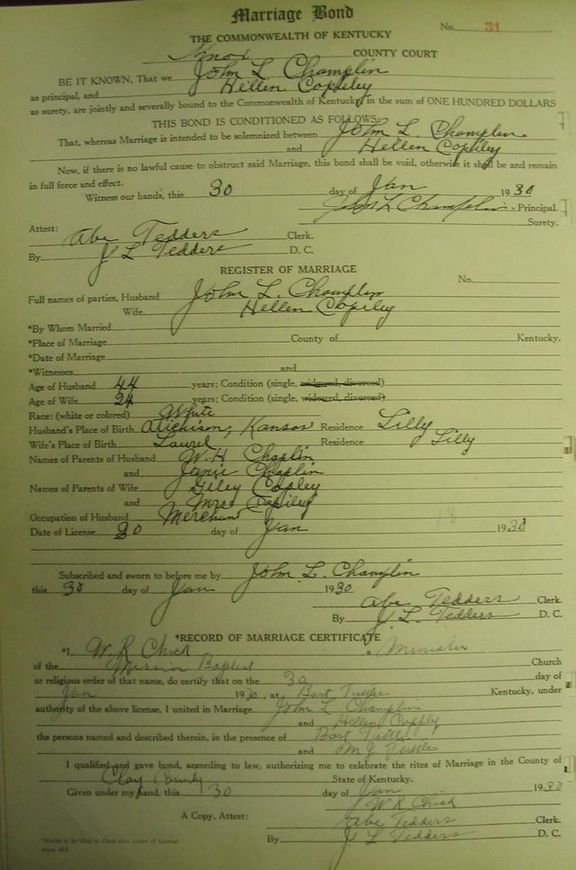 Marriage Bond
No. 31
THE COMMONWEALTH OF KENTUCKY
Knox COUNTY COURT
BE IT KNOWN, That we John L. Champlin
as principal, and Hellen Copiley
as surety, are jointly and severally bound to the Commonwealth of Kentucky in the sum of ONE HUNDRED DOLLARS
THIS BOND IS CONDITIONED AS FOLLOWS:
That, whereas Marriage is intended to be solemnized between John L. Champlin
and Hellen Copiley
Now, if there is no lawful cause to obstruct said Marriage, this bond shall be void, otherwise it shall be and remain
in full force and effect.
Witness our hands, this 30 day of Jan 1930
John L Champlin - Principal.
Surety.
Attest:
Abe Tedders Clerk.
By J L Tedders D. C.
REGISTER OF MARRIAGE
No.
Full names of parties, Husband John L. Champlin
Wife Hellen Copiley
*By Whom Married
*Place of Marriage County of Kentucky.
*Date of Marriage
*Witnesses and
Age of Husband 44 years; Condition (single, widowed, divorced)
Age of Wife 24 years; Condition (single, widowed, divorced)
Race: (white or colored) White
Husband's Place of Birth Atichison, Kansas Residence Lilly
Wife's Place of Birth Laurel Residence Lilly
Names of Parents of Husband W. H Chaplin
and Janie Chaplin
Names of Parents of Wife Giley Copley
and Mrs Copiley
Occupation of Husband Merchant
Date of License 30 day of Jan 1930
Subscribed and sworn to before me by John L. Champlin
this 30 day of Jan 1930
Abe Tedders Clerk.
By J L Tedders D. C.
*RECORD OF MARRIAGE CERTIFICATE
*I, W. R Chick a Minister
of the Mission Baptist Church
or religious order of that name, do certify that on the 30 day of
Jan 1930, at Bart Kentucky, under
authority of the above license, I united in Marriage John L Champlin
and Hellen Copply
the persons named and described therein, in the presence of Bart
and
I qualified and gave bond, according to law, authorizing me to celebrate the rites of Marriage in the County of
Clay County State of Kentucky.
Given under my hand, this 30 day of Jan 1930
W R Chick
A Copy, Attest: Abe Tedders Clerk
By J L Tedders D. C.